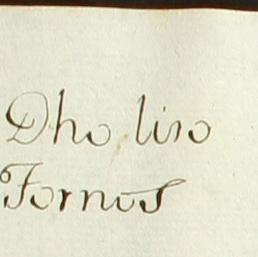 Dho liso
Fornos